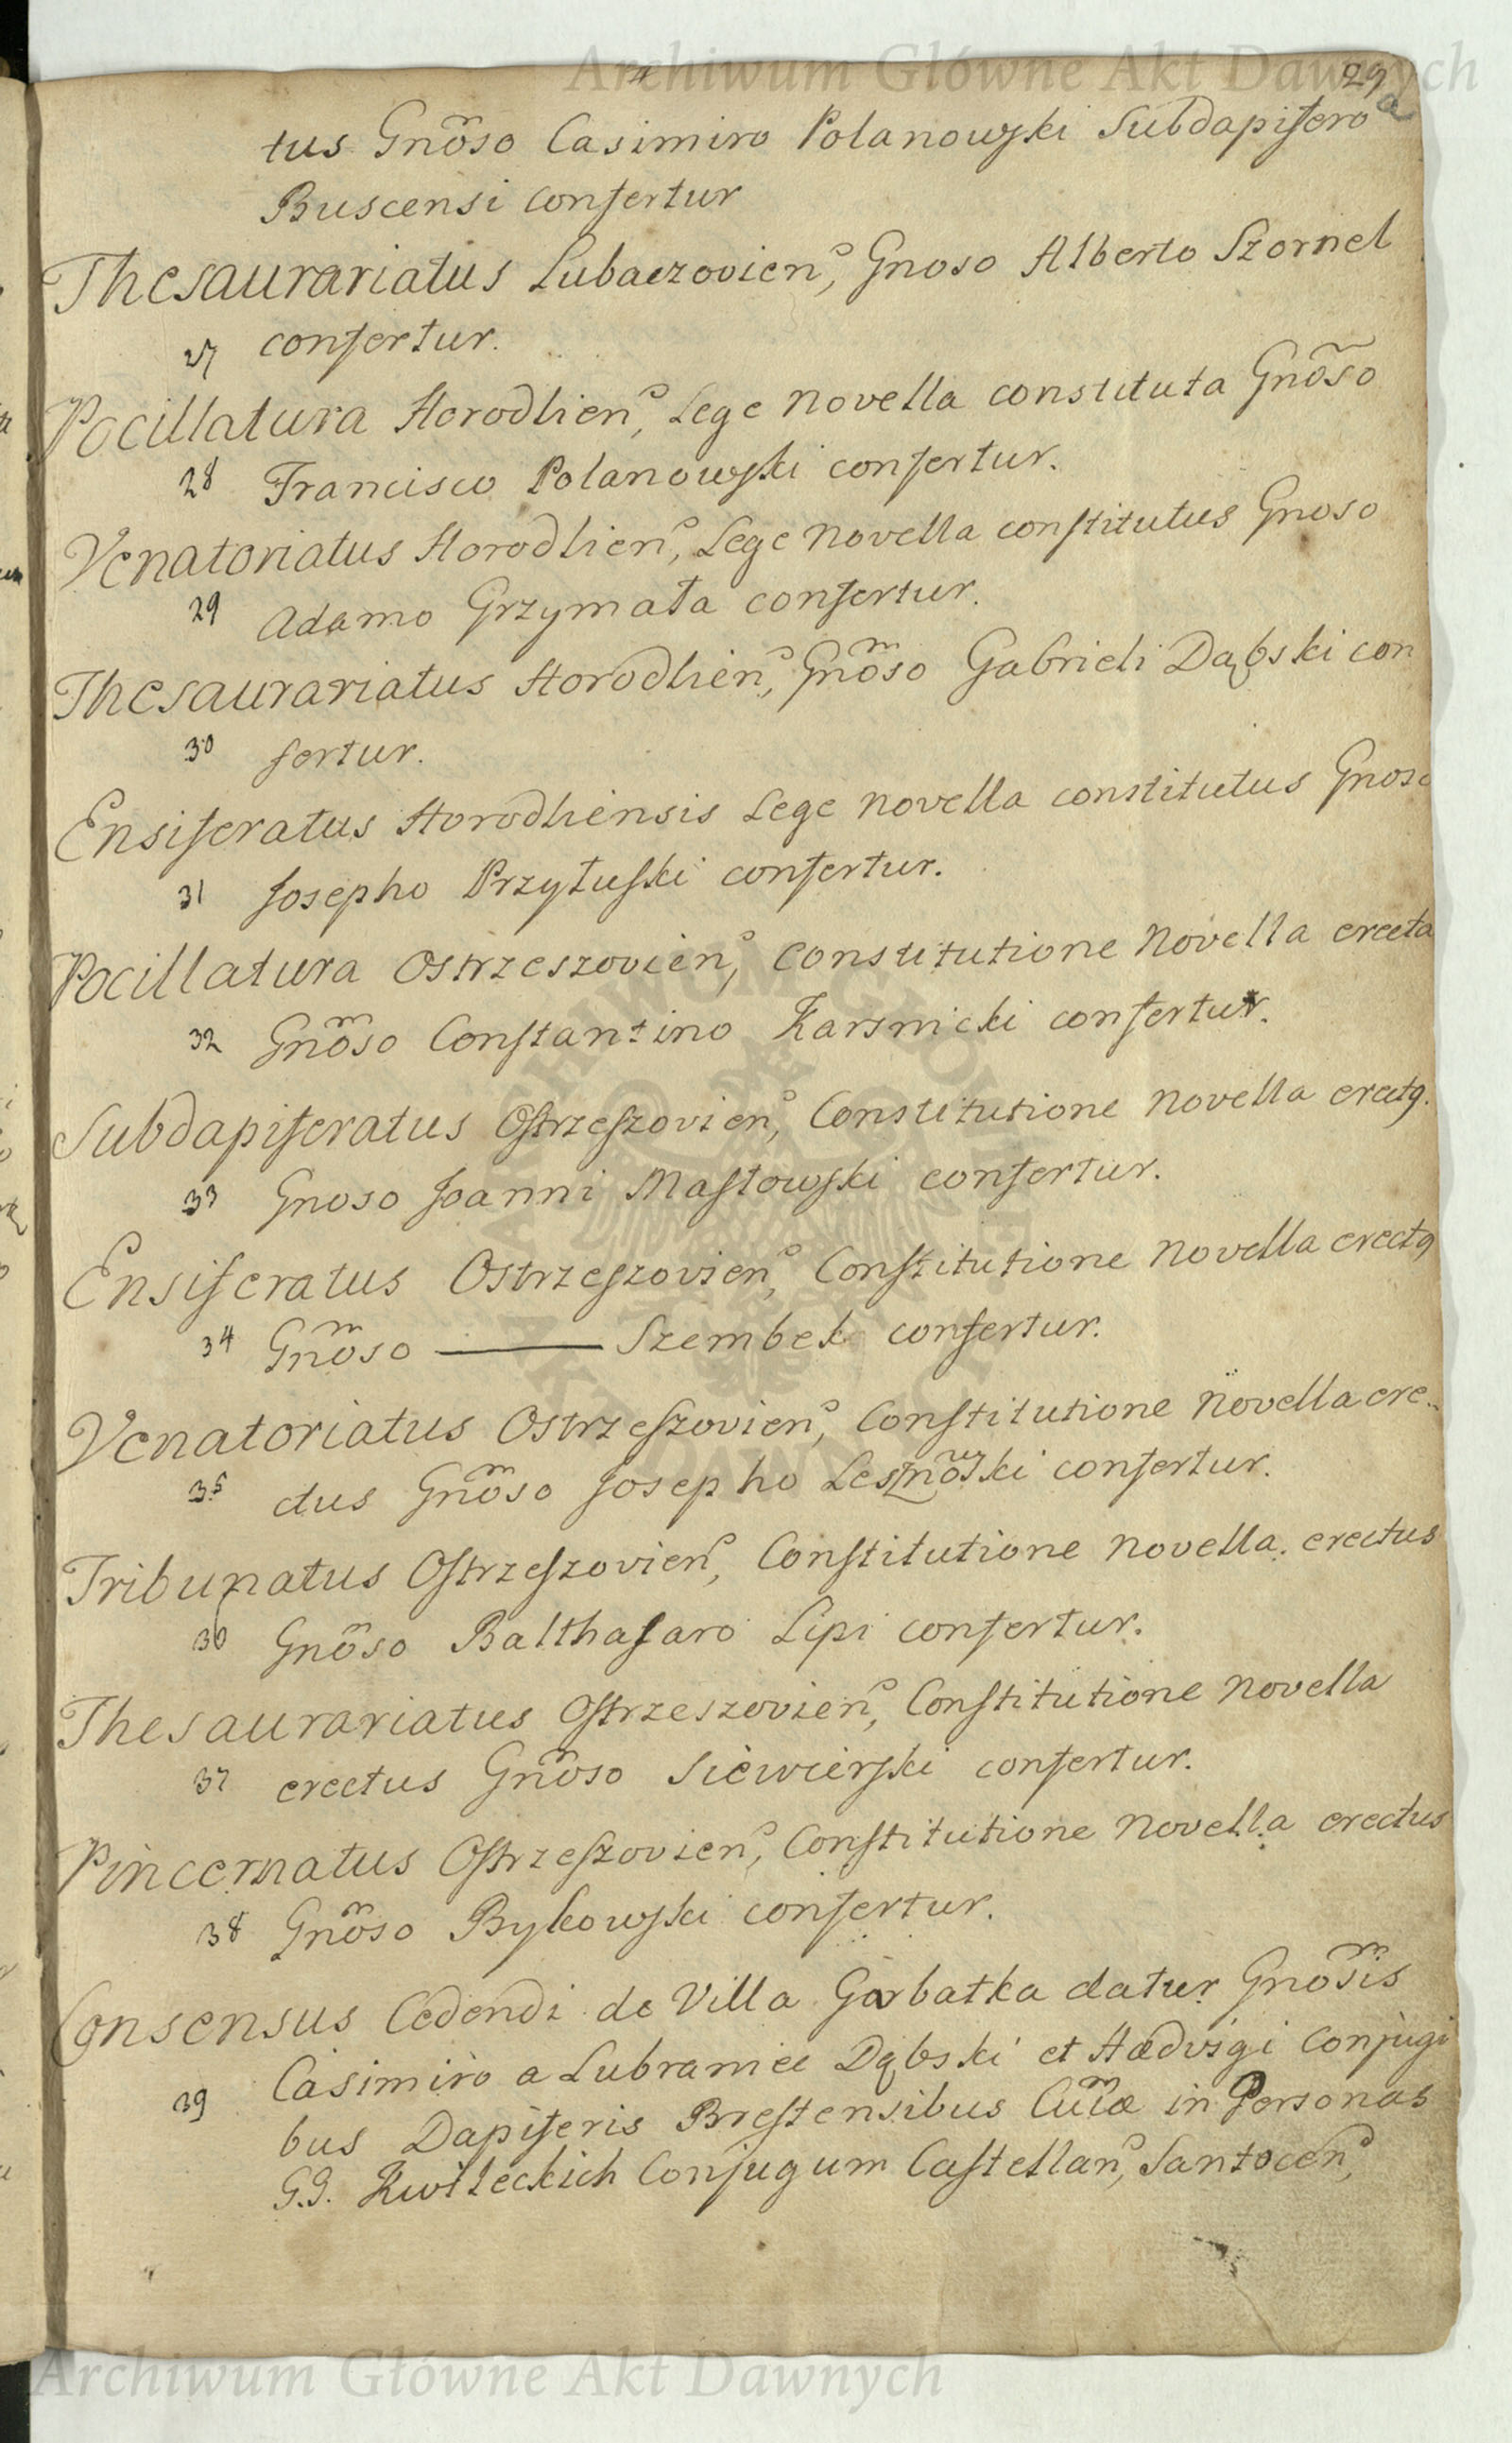 Archiwum Główne Akt Dawnych
29
tus Gnoso Casimiro Polanowski Subdapifero
Buscensi confertur
Thesaurariatus Lubaczovien, Gnoso Alberto Szornel
27 confertur.
Pocillatura Horodlien, Lege novella constituta Gnoso
28 Francisco Polanowski confertur.
Venatoriatus Horodlien, Lege novella constitutus Gnoso
29 Adamo Grzymała confertur.
Thesaurariatus Horodlien, Gnoso Gabrieli Dąbski con
30 fertur.
Ensiferatus Horodliensis Lege novella constitutus Gnoso
31 Josepho Przyłuski confertur.
Pocillatura Ostrzeszovien, Constitutione Novella erecta
32 Gnoso Constantino Karsnicki confertur.
Subdapiferatus Ostrzeszovien, Constitutione novella erectq.
33 Gnoso Joanni Masłowski confertur.
Ensiferatus Ostrzeszovien, Constitutione Novella erectq
34 Gnoso ——— Szembek confertur.
Venatoriatus Ostrzeszovien, Constitutione Novella ere..
35 ctus Gnoso Josepho confertur.
Tribunatus Ostrzeszovien, Constitutione novella erectus
36 Gnoso Balthasaro Lipi confertur.
Thesaurariatus Ostrzeszovien, Constitutione novella
37 erectus Gnoso Siewierski confertur.
Pincernatus Ostrzeszovien, Constitutione Novella erectus
38 Gnoso Bykowski confertur.
Consensus Cedendi de Villa Garbatka datur Gnosis
Casimiro a Lubraniec Dąbski et Hædvigi Conjugi
39
bus Dapiferis Brestensibus Cuiæ in Personas
G.G. Kwileckich Conjugum Castellan, Santocen,
Archiwum Główne Akt Dawnych